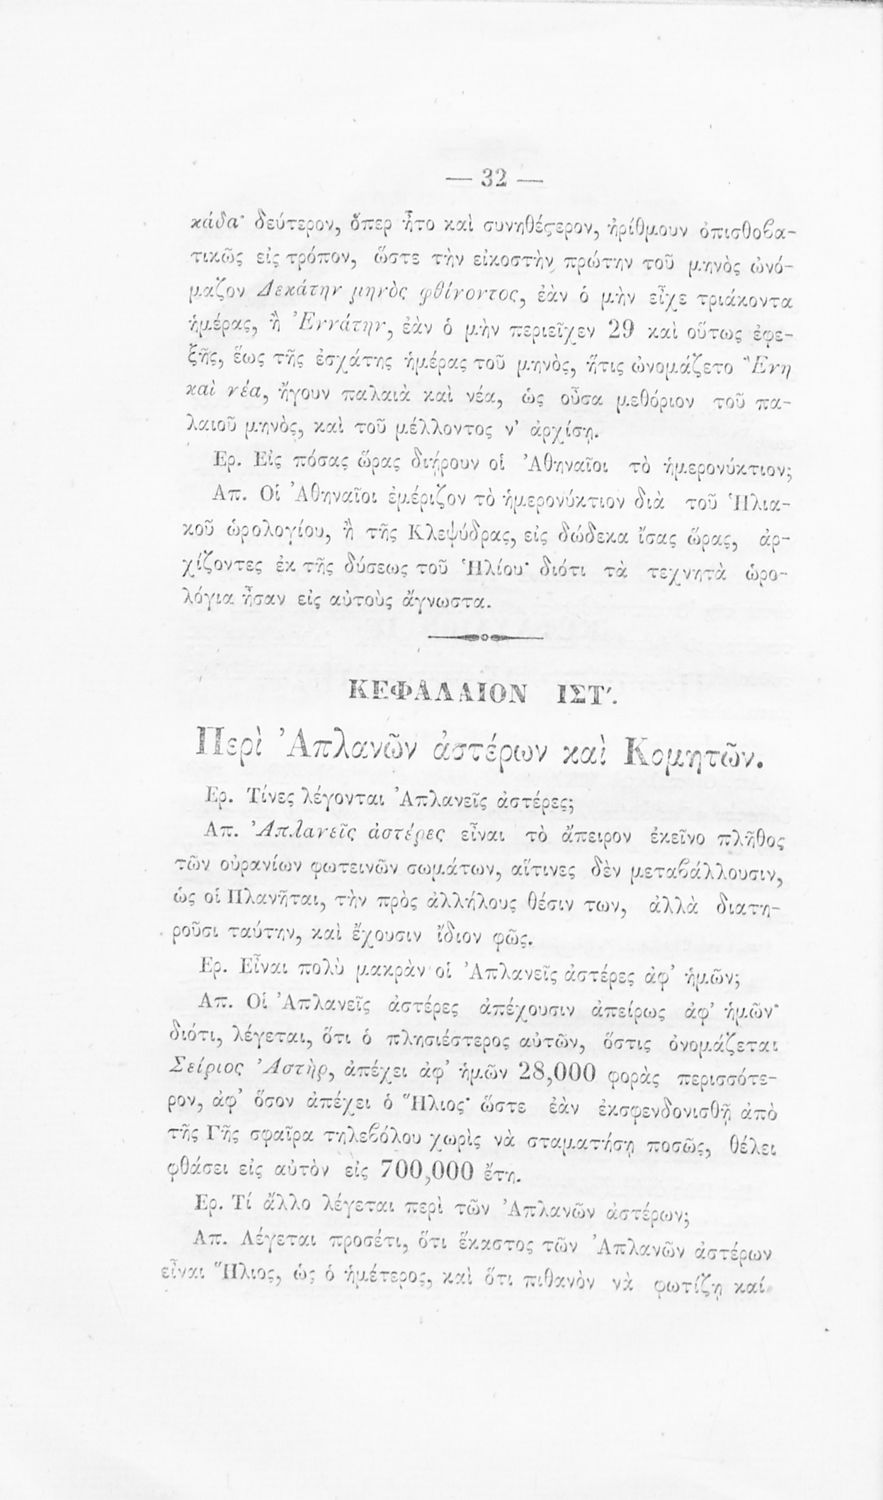 — 32 —
κάδα· δεύτερον, ὅπερ ἦτο καὶ συνηθέςερον, ἠρίθμουν ὀπισθοβα-
τικῶς εἰς τρόπον, ὥστε τὴν εἰκοστὴν πρώτην τοῦ μηνὸς ὠνό-
μαζον Δεκάτην μηνὸς φθίνοντος, ἐὰν ὁ μὴν εἶχε τριάκοντα
ἡμέρας, ἢ Ἐννάτην, ἐὰν ὁ μὴν περιεῖχεν 29 καὶ οὕτως ἐφε-
ξῆς, ἕως τῆς ἐσχάτης ἡμέρας τοῦ μηνὸς, ἥτις ὠνομάζετο Ἔνη
καὶ νέα, ἤγουν παλαιὰ καὶ νέα, ὡς οὖσα μεθόριον τοῦ πα-
λαιοῦ μηνὸς, καὶ τοῦ μέλλοντος ν' ἀρχίσῃ.
Ἐρ. Εἰς πόσας ὥρας διῄρουν οἱ Ἀθηναῖοι τὸ ἡμερονύκτιον;
Ἀπ. Οἱ Ἀθηναῖοι ἐμέριζον τὸ ἡμερονύκτιον διὰ τοῦ Ἡλια-
κοῦ ὡρολογίου, ἢ τῆς Κλεψύδρας, εἰς δώδεκα ἴσας ὥρας, ἀρ-
χίζοντες ἐκ τῆς δύσεως τοῦ Ἡλίου· διότι τὰ τεχνητὰ ὡρο-
λόγια ἦσαν εἰς αὐτοὺς ἄγνωστα.
ΚΕΦΑΛΑΙΟΝ ΙΣΤ'.
Περὶ Ἀπλανῶν ἀστέρων καὶ Κομητῶν.
Ἐρ. Τίνες λέγονται Ἀπλανεῖς ἀστέρες;
Ἀπ. Ἀπλανεῖς ἀστέρες εἶναι τὸ ἄπειρον ἐκεῖνο πλῆθος
τῶν οὐρανίων φωτεινῶν σωμάτων, αἵτινες δὲν μεταβάλλουσιν,
ὡς οἱ Πλανῆται, τὴν πρὸς ἀλλήλους θέσιν των, ἀλλὰ διατη-
ροῦσι ταύτην, καὶ ἔχουσιν ἴδιον φῶς.
Ἐρ. Εἶναι πολὺ μακρὰν οἱ Ἀπλανεῖς ἀστέρες ἀφ' ἡμῶν;
Ἀπ. Οἱ Ἀπλανεῖς ἀστέρες ἀπέχουσιν ἀπείρως ἀφ' ἡμῶν·
διότι, λέγεται, ὅτι ὁ πλησιέστερος αὐτῶν, ὅστις ὀνομάζεται
Σείριος Ἀστὴρ, ἀπέχει ἀφ' ἡμῶν 28,000 φορὰς περισσότε-
ρον, ἀφ' ὅσον ἀπέχει ὁ Ἥλιος· ὥστε ἐὰν ἐκσφενδονισθῇ ἀπὸ
τῆς Γῆς σφαῖρα τηλεβόλου χωρὶς νὰ σταματήσῃ ποσῶς, θέλει
φθάσει εἰς αὐτὸν εἰς 700,000 ἔτη.
Ἐρ. Τί ἄλλο λέγεται περὶ τῶν Ἀπλανῶν ἀστέρων;
Ἀπ. Λέγεται προσέτι, ὅτι ἕκαστος τῶν Ἀπλανῶν ἀστέρων
εἶναι Ἥλιος, ὡς ὁ ἡμέτερος, καὶ ὅτι πιθανὸν νὰ φωτίζῃ καί